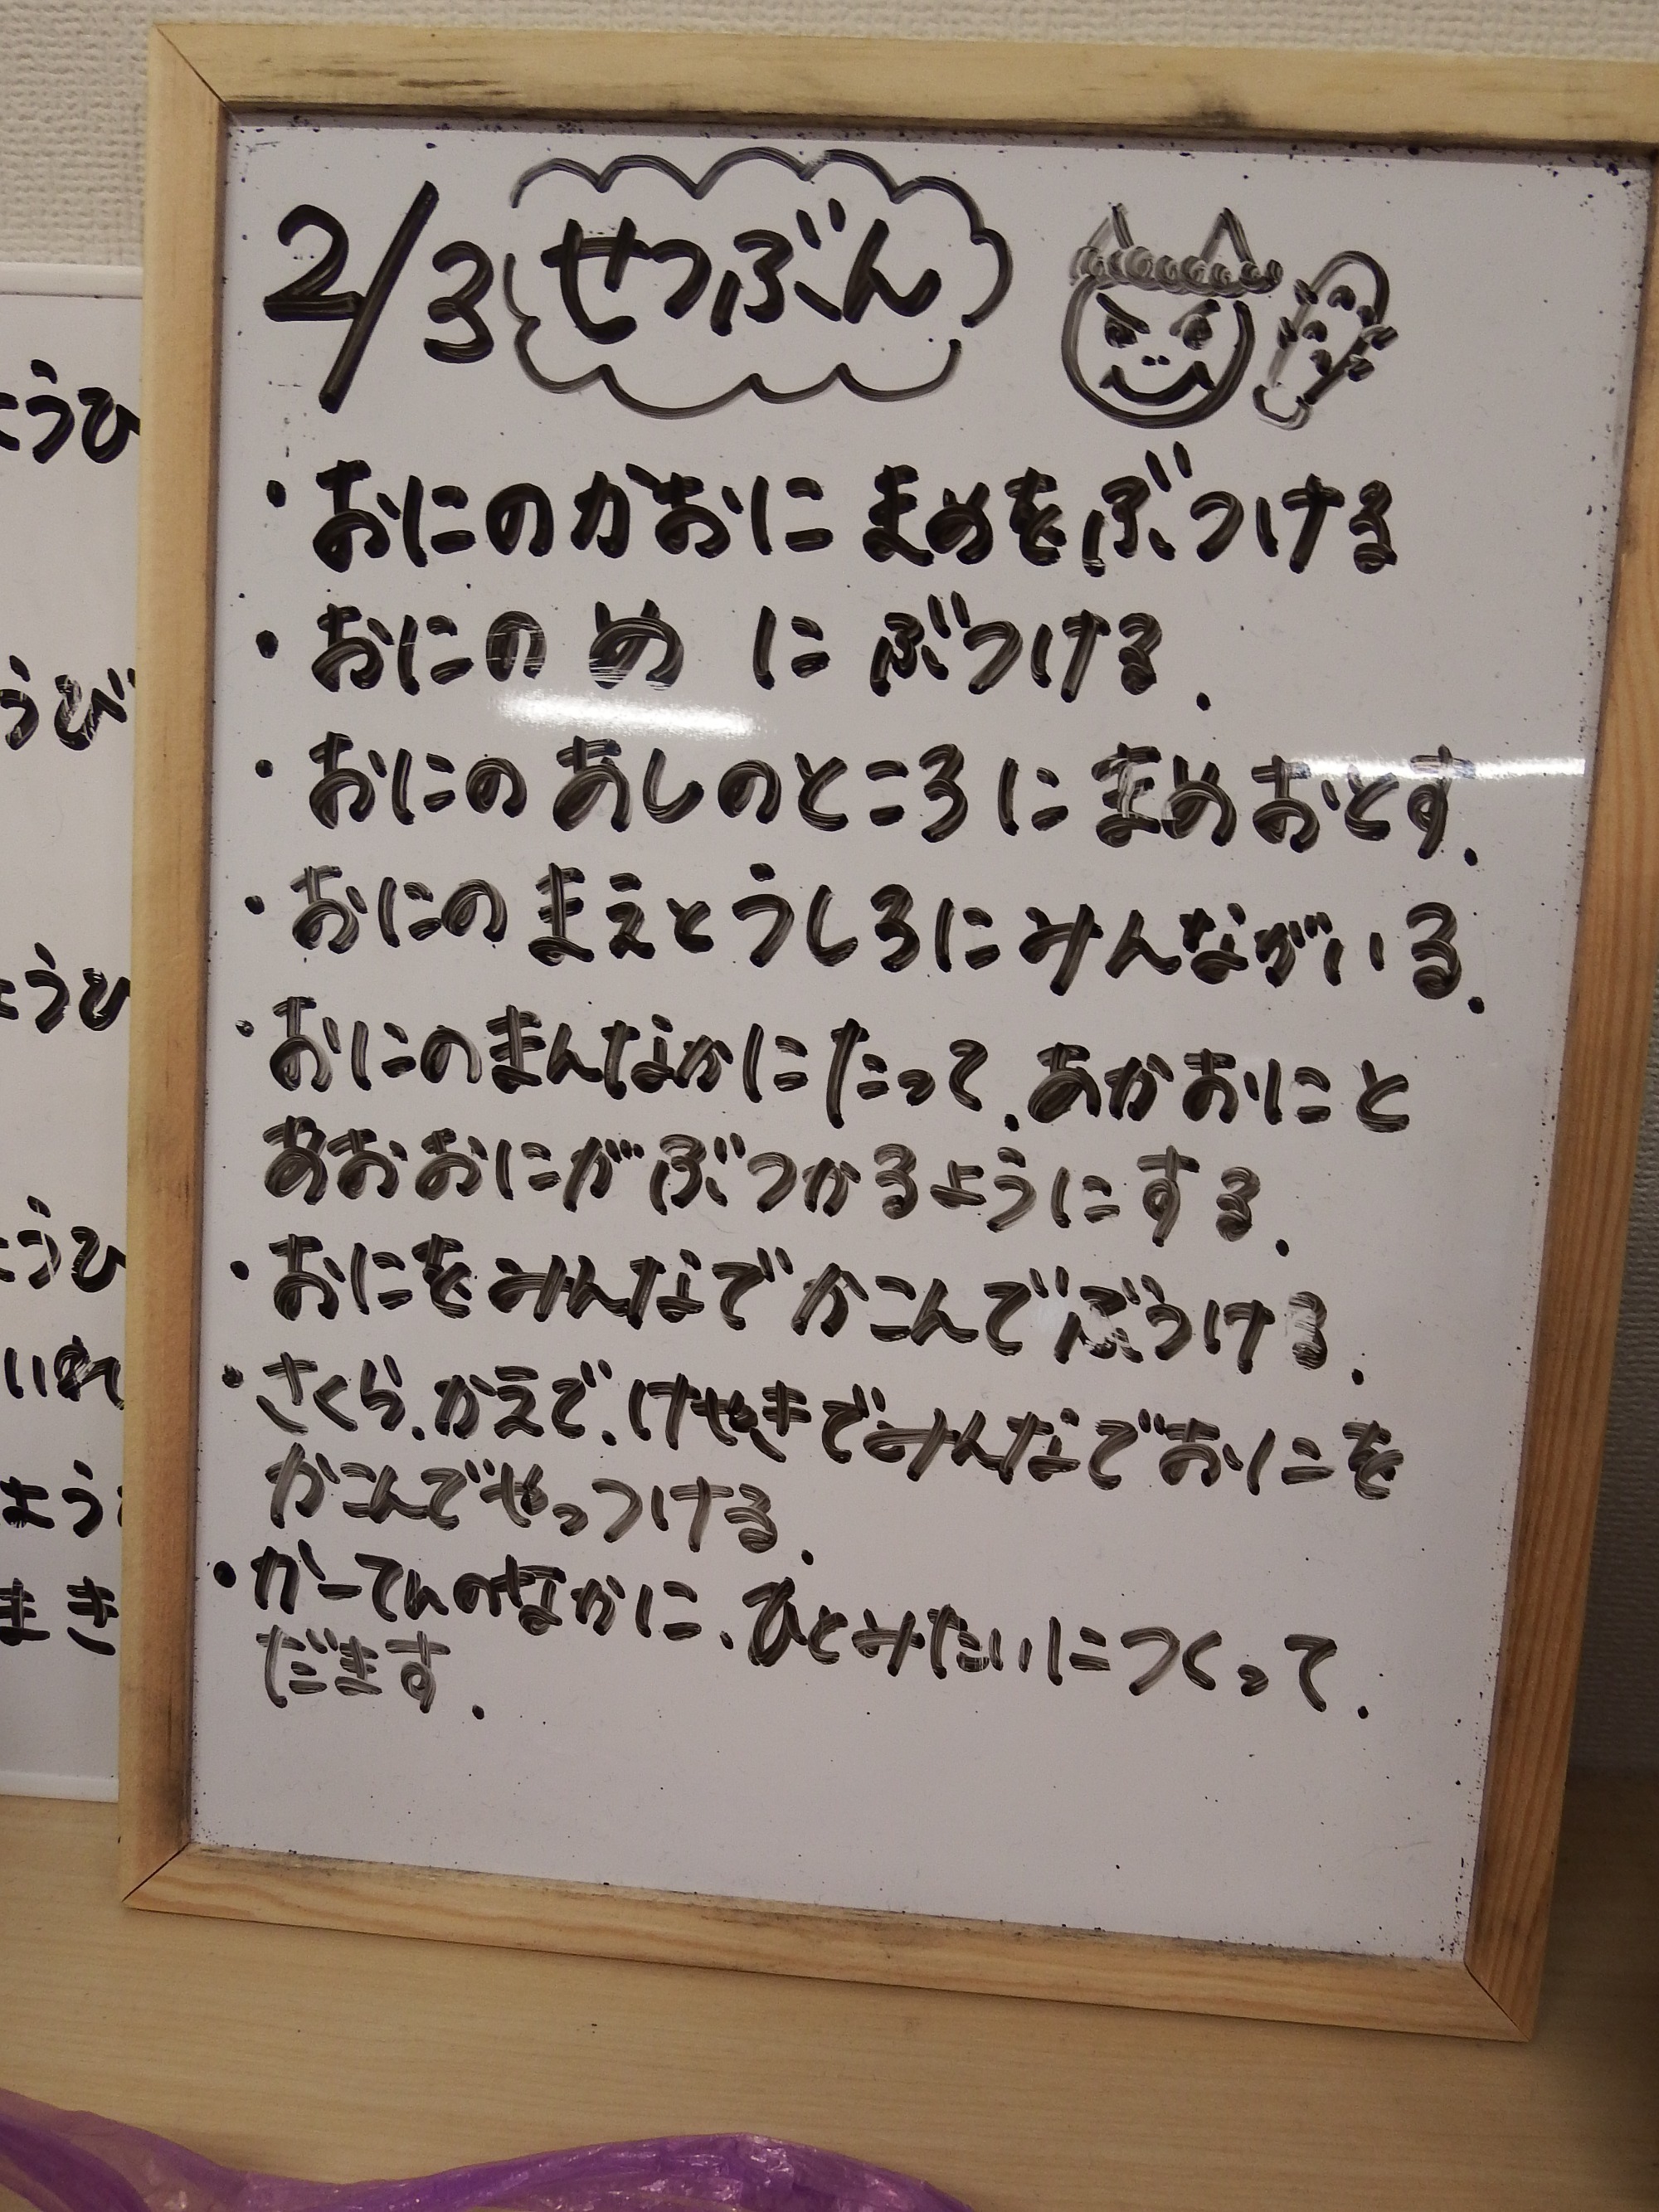 2/3 せつぶん
・おにのかおに まめをぶつける
・おにの め に ぶつける.
・おにの あしのところに まめおとす.
・おにの まえとうしろにみんながいる.
・おにのまんなかにたって.あかおにと
あおおにがぶつかるようにする.
・おにをみんなでかこんでぶつける.
・さくら.かえで.けやきでみんなでおにを
かこんでやっつける.
・かーてんのなかに.ひとみたいにつくって.
だます.
ようひ
うび
ようひ
ようひ
いれ
よう
まき